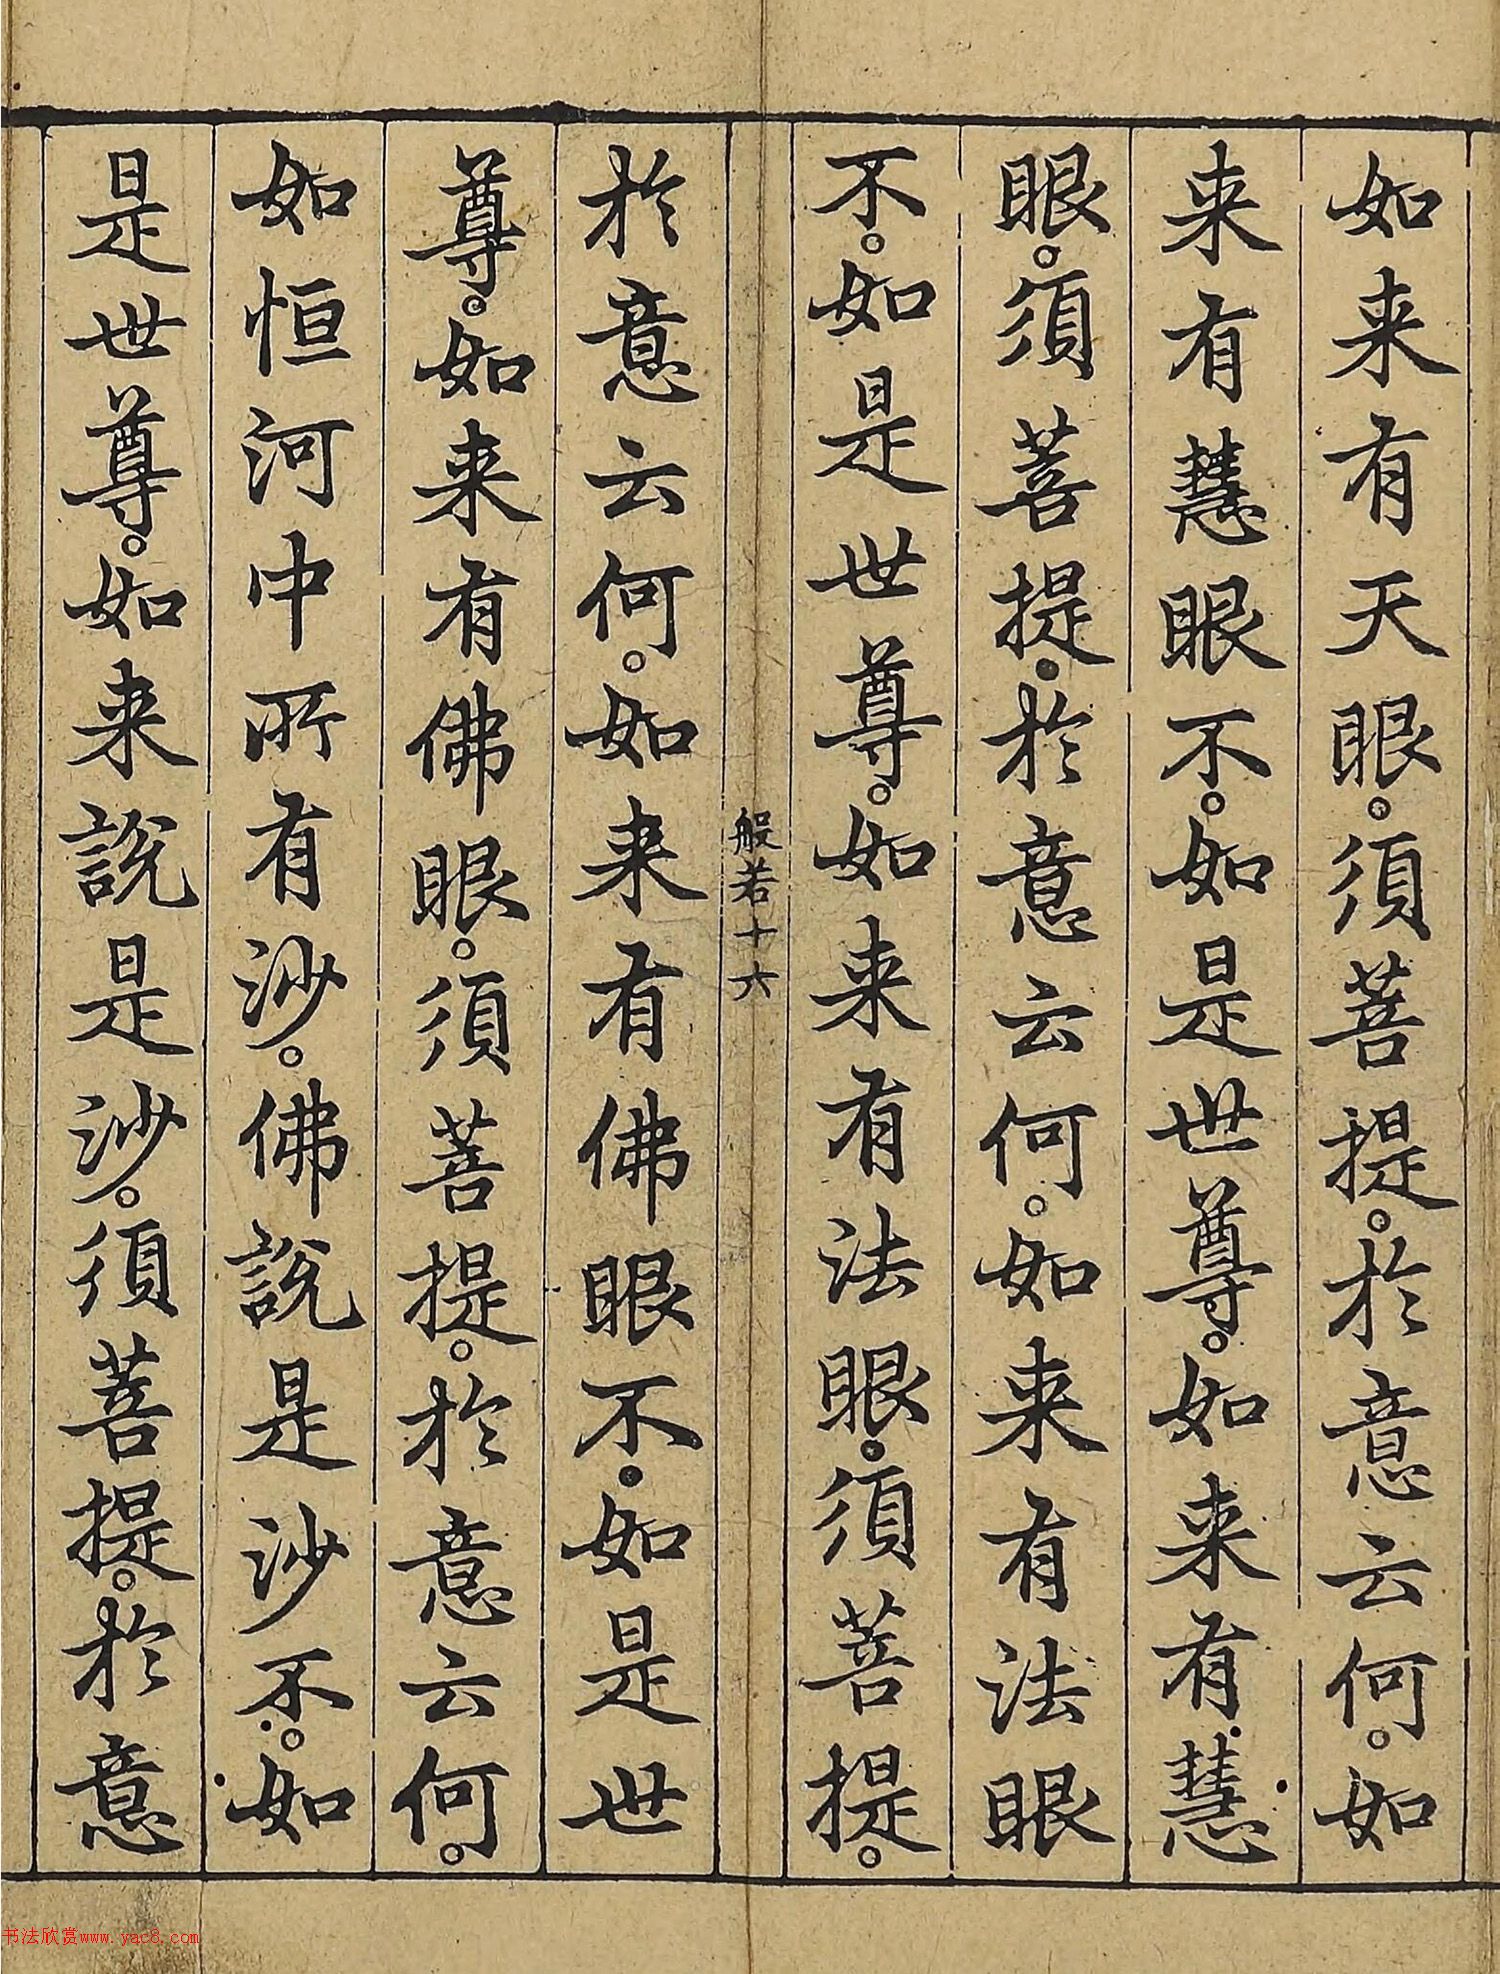 如来有天眼。須菩提。於意云何。如
来有慧眼不。如是世尊。如来有慧
眼。須菩提。於意云何。如来有法眼
不。如是世尊。如来有法眼。須菩提。
般若十六
於意云何。如来有佛眼不。如是世
尊。如来有佛眼。須菩提。於意云何。
如恒河中所有沙。佛說是沙不。如
是世尊。如来說是沙。須菩提。於意
书法欣赏www.yac8.com